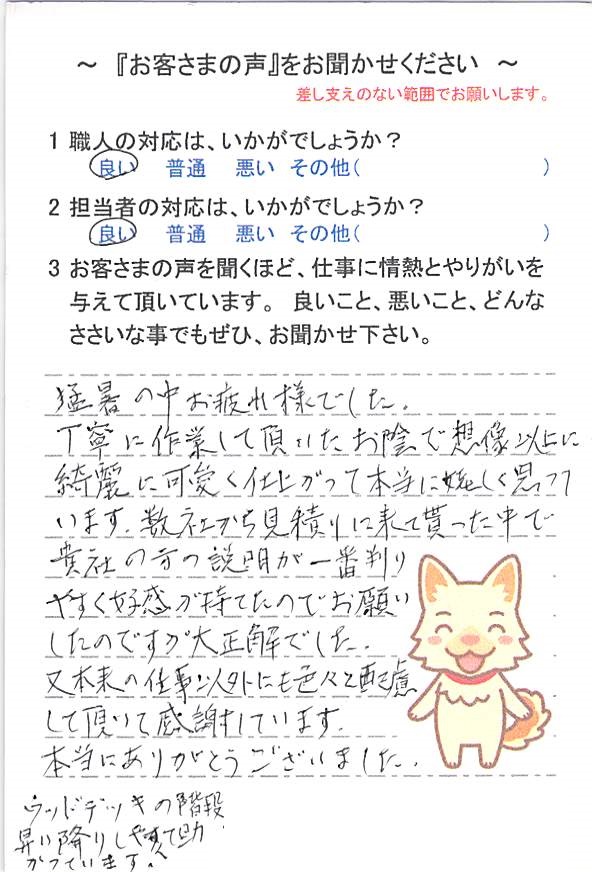 ～ 『お客さまの声』をお聞かせください ～
差し支えのない範囲でお願いします。
1 職人の対応は、いかがでしょうか？
良い 普通 悪い その他( )
2 担当者の対応は、いかがでしょうか？
良い 普通 悪い その他( )
3 お客さまの声を聞くほど、仕事に情熱とやりがいを
与えて頂いています。 良いこと、悪いこと、どんな
ささいな事でもぜひ、お聞かせ下さい。
猛暑の中お疲れ様でした。
丁寧に作業して頂いたお陰で想像以上に
綺麗に可愛く仕上がって本当に嬉しく思って
います。数社から見積りに来て貰った中で
貴社の方の説明が一番判り
やすく好感が持てたのでお願い
したのですが大正解でした。
又本来の仕事以外にも色々と配慮
して頂いて感謝しています。
本当にありがとうございました。
ウッドデッキの階段
昇り降りしやすくて助
かっています。